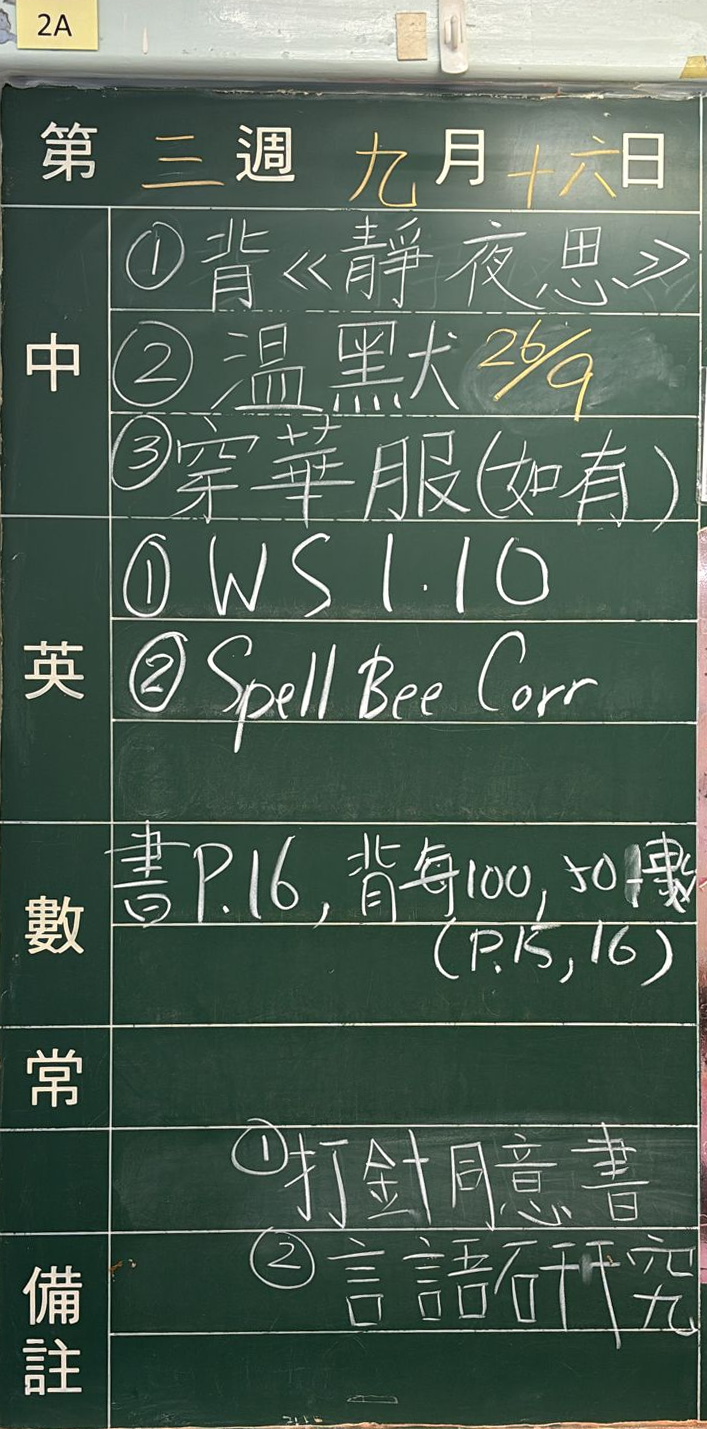 2A
第三週 九月十六日
中
①背《靜夜思》
②溫默26/9
③穿華服(如有)
英
①WS 1.10
②Spell Bee Corr
數
書P.16,背每100,50個數
(P.15,16)
常
①打針同意書
備註
②言語研究